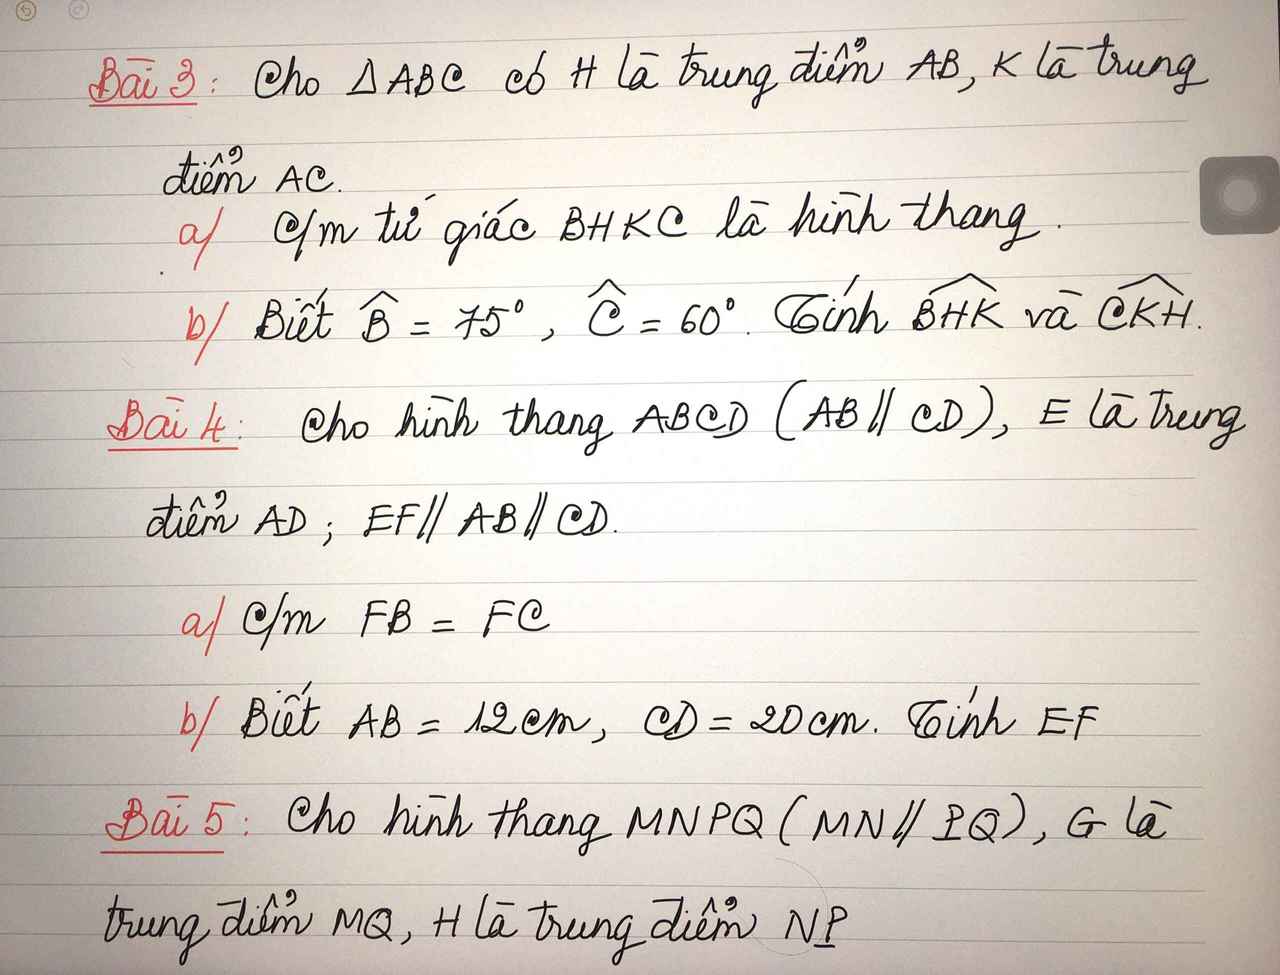 Bài 3: Cho Δ ABC có H là trung điểm AB, K là trung
điểm AC.
a/ C/m tứ giác BHKC là hình thang.
b/ Biết B̂ = 75°, Ĉ = 60°. Tính \widehat{BHK} và \widehat{CKH}.
Bài 4: Cho hình thang ABCD (AB // CD), E là trung
điểm AD; EF // AB // CD.
a/ C/m FB = FC
b/ Biết AB = 12cm, CD = 20cm. Tính EF
Bài 5: Cho hình thang MNPQ (MN // PQ), G là
trung điểm MQ, H là trung điểm NP